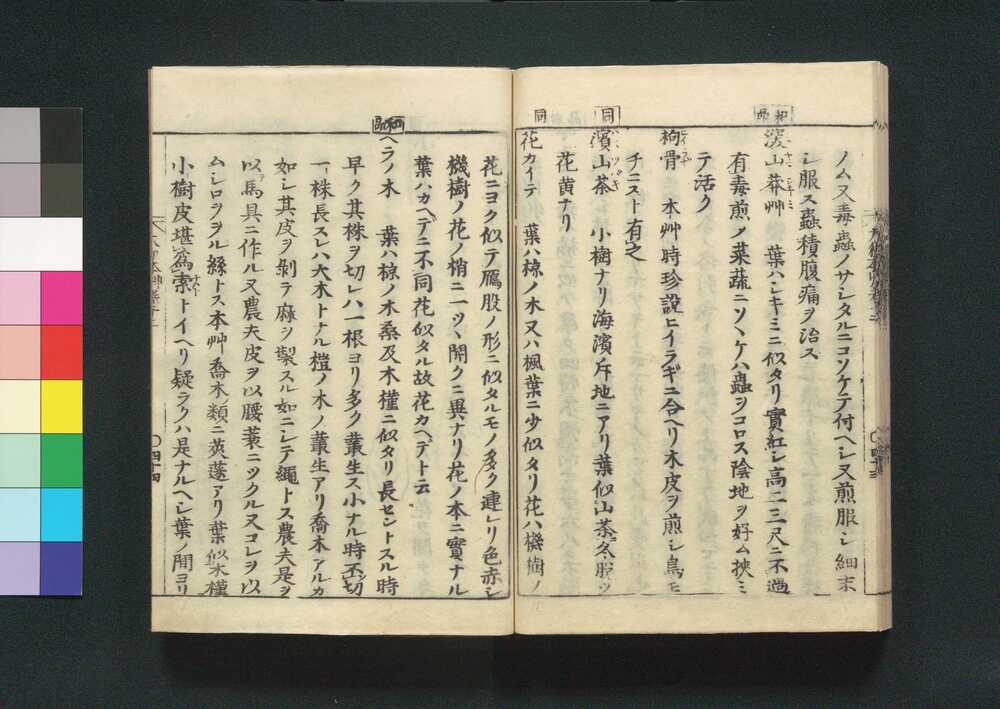 ノム又毒蟲ノサシタルニコソケテ付ヘシ又煎服シ細末
シ服ス蟲積腹痛ヲ治ス
和品
深山莽艸 葉ハシキミニ似タリ實紅シ高二三尺ニ不過
有毒煎ノ菜蔬ニソヽケハ蟲ヲコロス陰地ヲ好ム挾ミ
テ活ク
枸骨 本艸時珍説ヒイラギニ合ヘリ木皮ヲ煎シ鳥モ
チニスト有之
同
濱山茶 小樹ナリ海濱斥地ニアリ葉似山茶冬不脱
花黄ナリ
同
花カイテ 葉ハ椋ノ木又ハ楓葉ニ少似タリ花ハ機樹ノ
花ニヨク似テ鴈股ノ形ニ似タルモノ多ク連レリ色赤シ
機樹ノ花ノ梢ニ一ツヽ開クニ異ナリ花ノ本ニ實ナル
葉ハカヘデニ不同花似タル故花カヘデト云
和品
ヘラノ木 葉ハ椋ノ木桑及木槿ニ似タリ長セントスル時
早ク其株ヲ切レハ一根ヨリ多ク叢生ス小ナル時不切
一株長スレハ大木トナル榿ノ木ノ叢生アリ喬木アルカ
如シ其皮ヲ剝テ麻ヲ製スル如ニシテ繩トス農夫是ヲ
以馬具ニ作ル又農夫皮ヲ以腰蓑ニツクル又コレヲ以
ムシロヲヲル絲トス本艸喬木ノ類ニ莢蒾アリ葉似木槿
小樹皮堪爲索トイヘリ疑ラクハ是ナルヘシ葉ノ間ヨリ
〇四十四